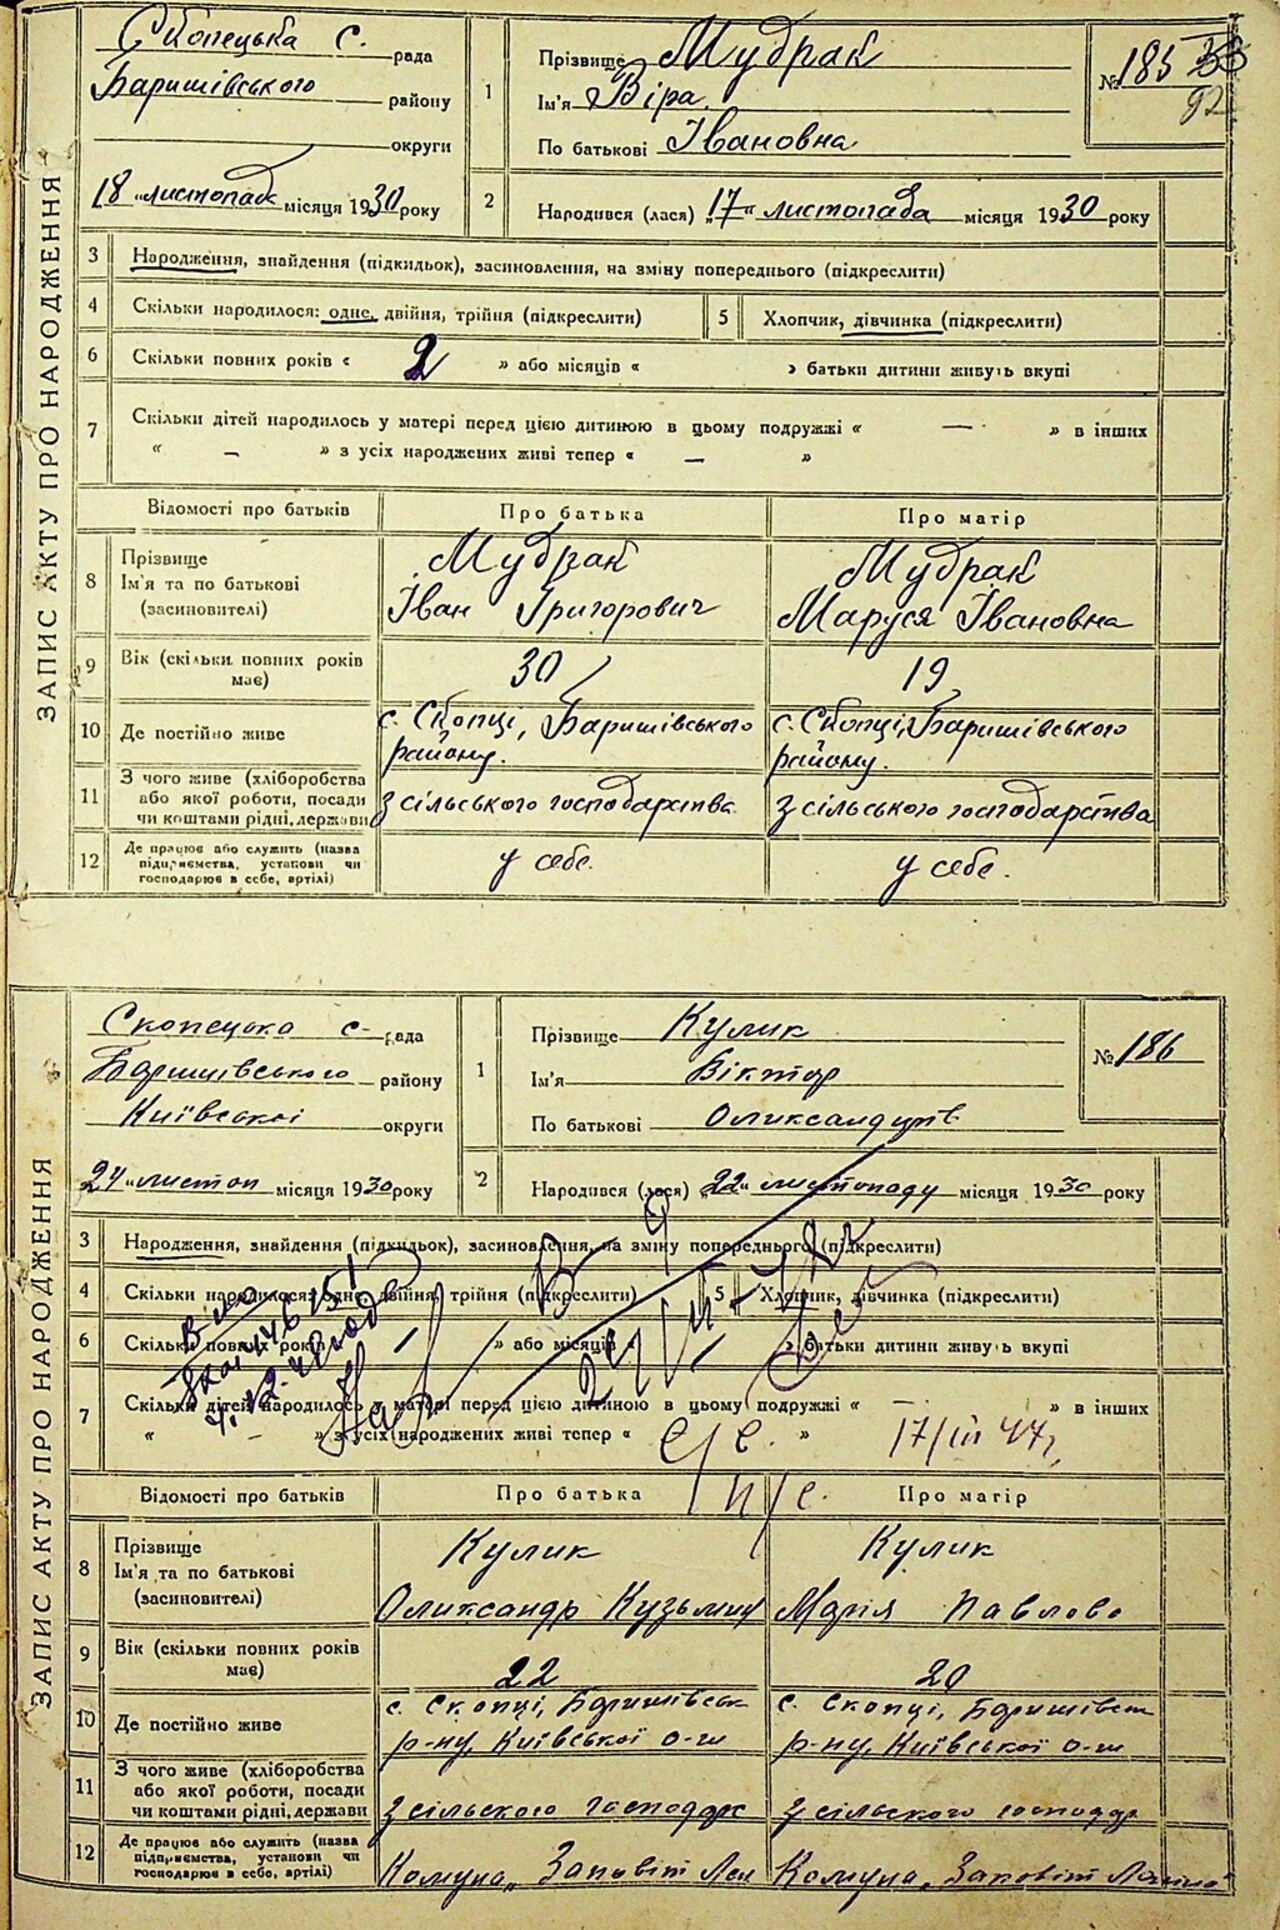 ЗАПИС АКТУ ПРО НАРОДЖЕННЯ
Скопецька с. рада
Баришівського району
округи
18 „листопада місяця 1930 року
1
Прізвище Мудрак
Ім'я Віра
По батькові Івановна
№ 185
92
2 Народився (лася) „17“ листопада місяця 1930 року
3 Народження, знайдення (підкидьок), засиновлення, на зміну попереднього (підкреслити)
4 Скільки народилося: одне, двійня, трійня (підкреслити) 5 Хлопчик, дівчинка (підкреслити)
6 Скільки повних років « 2 » або місяців « » батьки дитини живуть вкупі
7 Скільки дітей народилось у матері перед цією дитиною в цьому подружжі « — » в інших
« — » з усіх народжених живі тепер « — »
Відомості про батьків Про батька Про матір
8 Прізвище
Ім'я та по батькові
(засиновителі)
Мудрак
Іван Григорович
Мудрак
Маруся Івановна
9 Вік (скільки повних років
має)
30
19
10 Де постійно живе
с. Скопці, Баришівського
району.
с. Скопці, Баришівського
району.
11 З чого живе (хліборобства
або якої роботи, посади
чи коштами рідні, держави
з сільського господарства
з сільського господарства
12 Де працює або служить (назва
підприємства, установи чи
господарює в себе, артілі)
у себе.
у себе.
ЗАПИС АКТУ ПРО НАРОДЖЕННЯ
Скопецько с- рада
Баришівського району
Київської округи
24 „листоп місяця 1930 року
1
Прізвище Кулик
Ім'я Віктор
По батькові
№ 186
2 Народився (лася) „22“ листопаду місяця 1930 року
3 Народження, знайдення (підкидьок), засиновлення, на зміну попереднього (підкреслити)
4 Скільки народилося: одне, двійня, трійня (підкреслити) 5 Хлопчик, дівчинка (підкреслити)
6 Скільки повних років » або місяців « » батьки дитини живуть вкупі
7 Скільки дітей народилось у матері перед цією дитиною в цьому подружжі « — » в інших
« — » з усіх народжених живі тепер « »
17/III 47г.
Відомості про батьків Про батька Про матір
8 Прізвище
Ім'я та по батькові
(засиновителі)
Кулик
Оликсандр Кузьмич
Кулик
Марія Павлово
9 Вік (скільки повних років
має)
22
20
10 Де постійно живе
с. Скопці, Баришівськ
р-ну, Київської о-ги
с. Скопці, Баришівськ
р-ну, Київської о-ги
11 З чого живе (хліборобства
або якої роботи, посади
чи коштами рідні, держави
з сільского господар
з сільского господар
12 Де працює або служить (назва
підприємства, установи чи
господарює в себе, артілі)
Комуна „Заповіт Лен
Комуна „Заповіт